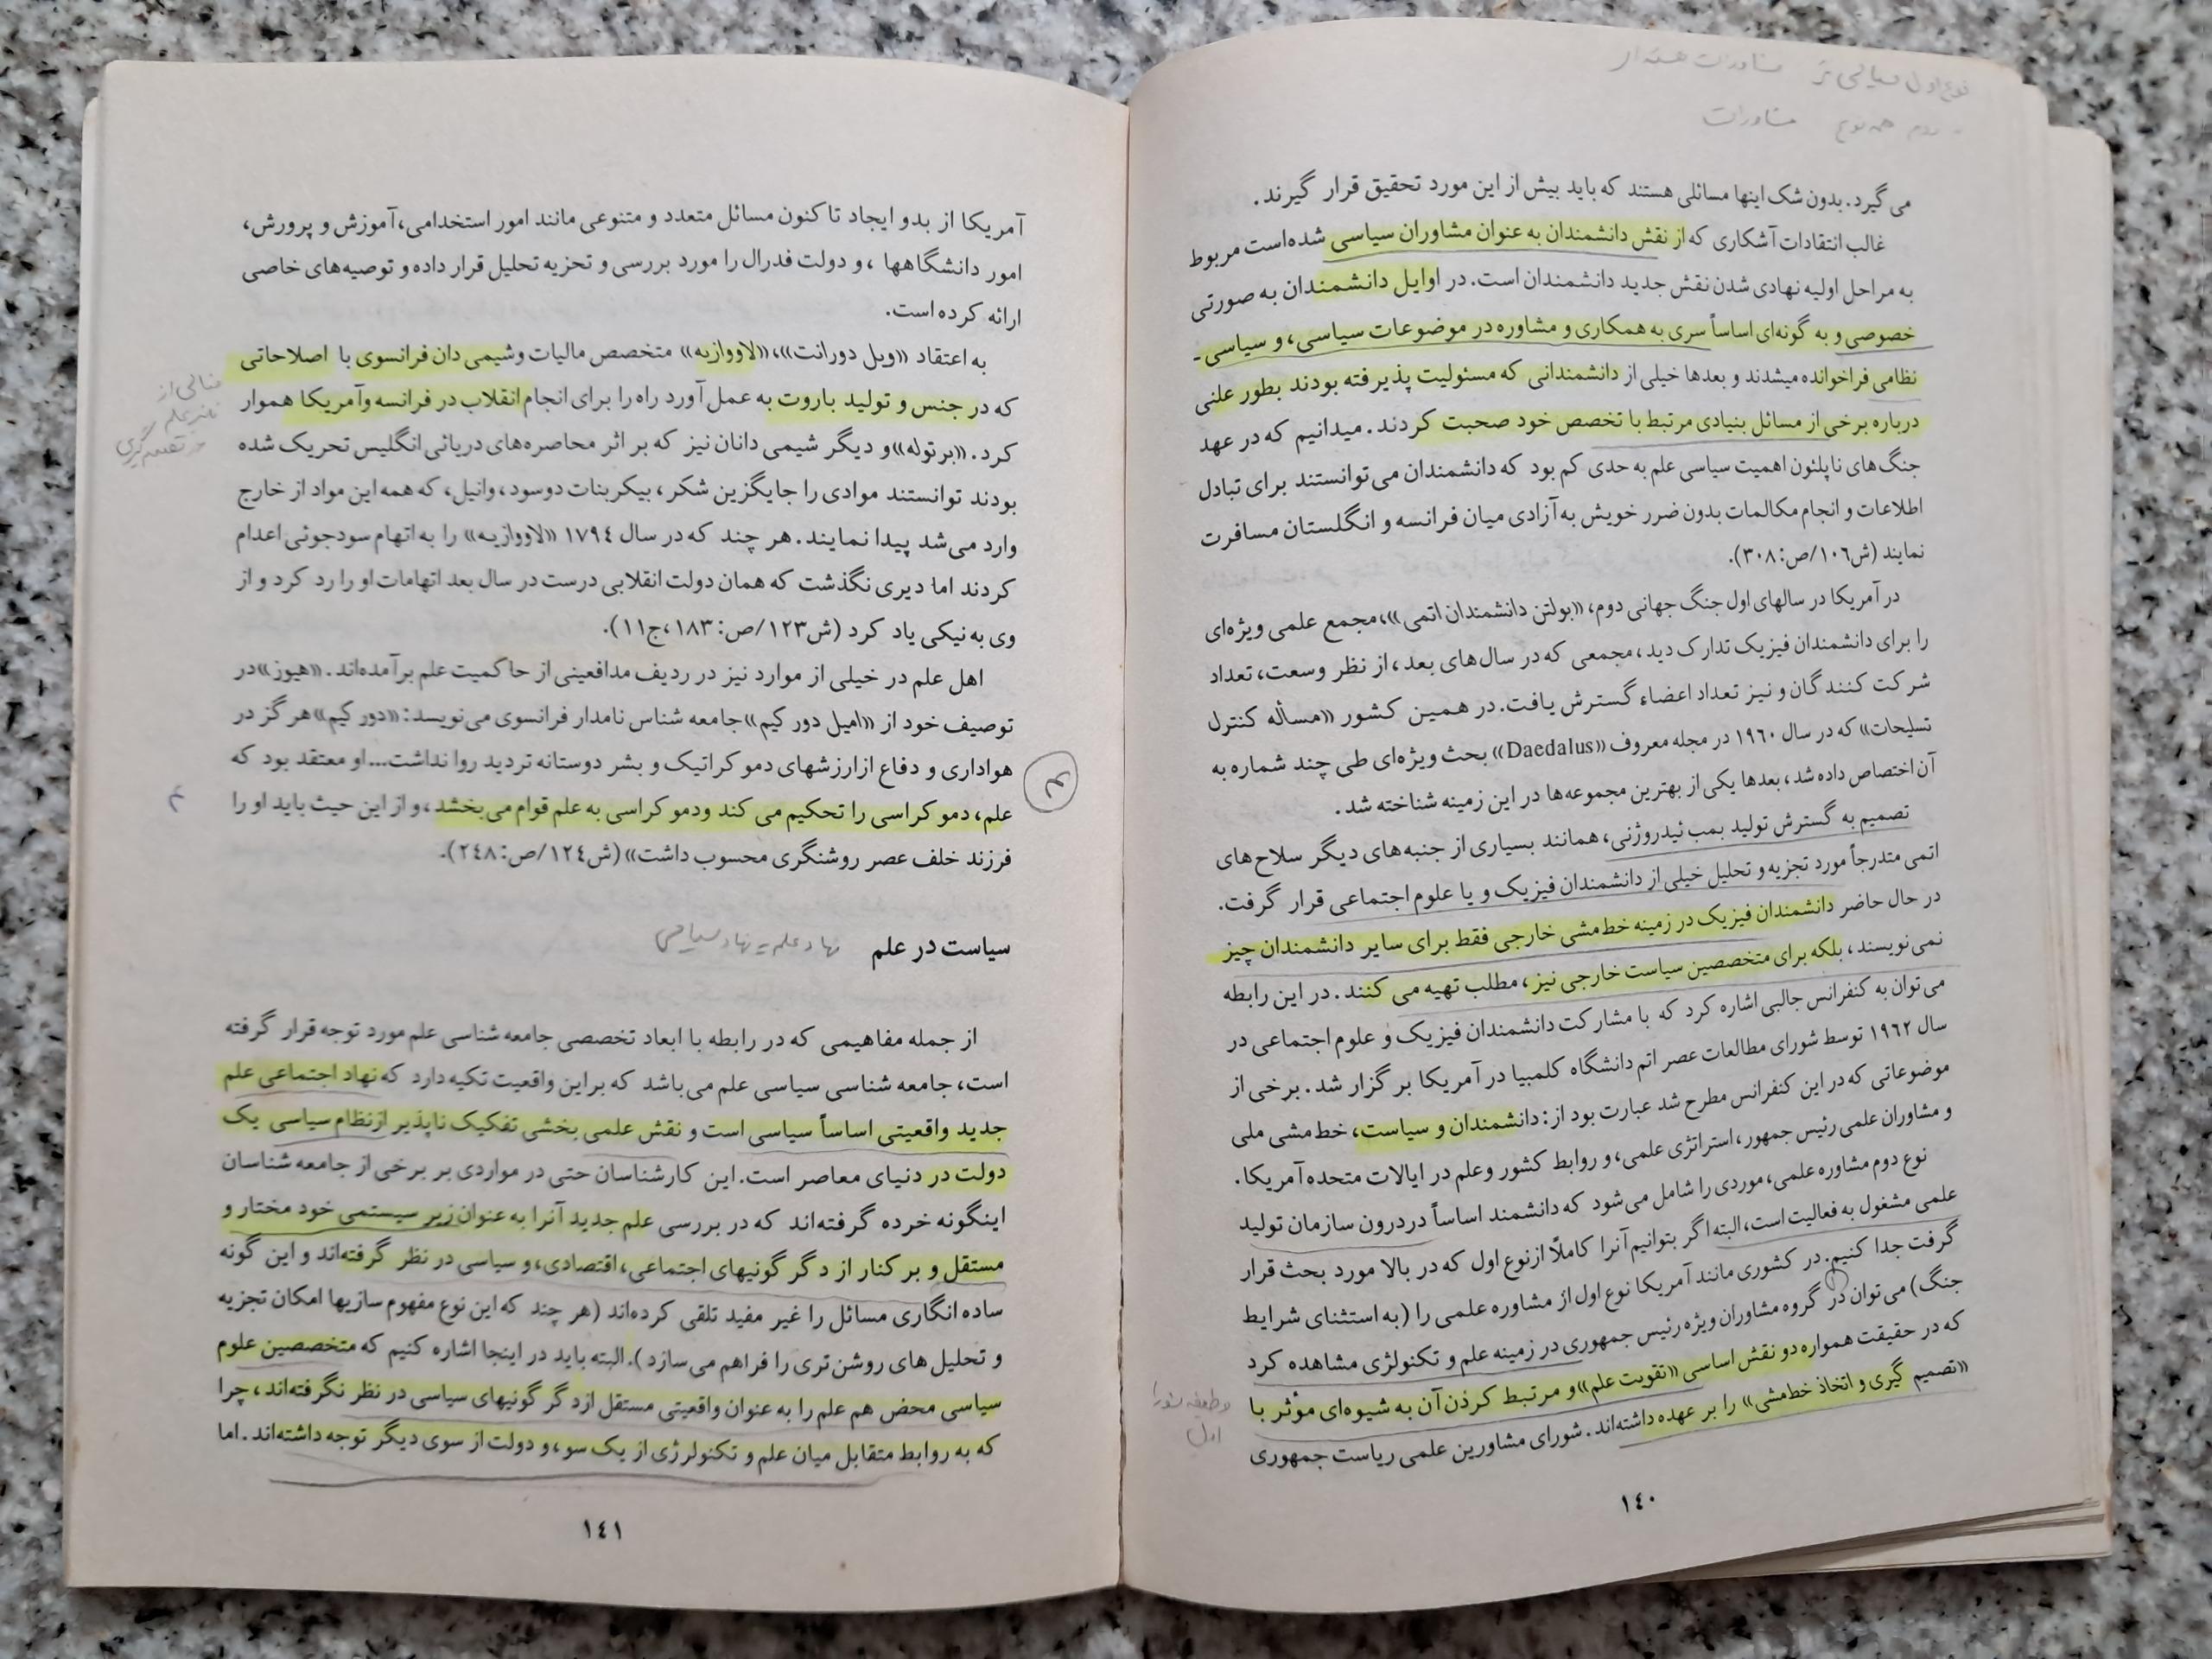 می گیرد. بدون شک اینها مسائلی هستند که باید بیش از این مورد تحقیق قرار گیرند.
غالب انتقادات آشکاری که از نقش دانشمندان به عنوان مشاوران سیاسی شده‌است مربوط
به مراحل اولیه نهادی شدن نقش جدید دانشمندان است. در اوایل دانشمندان به صورتی
خصوصی و به گونه‌ای اساساً سری به همکاری و مشاوره در موضوعات سیاسی، و سیاسی-
نظامی فراخوانده میشدند و بعدها خیلی از دانشمندانی که مسئولیت پذیرفته بودند بطور علنی
درباره برخی از مسائل بنیادی مرتبط با تخصص خود صحبت کردند. میدانیم که در عهد
جنگ های ناپلئون اهمیت سیاسی علم به حدی کم بود که دانشمندان می توانستند برای تبادل
اطلاعات و انجام مکالمات بدون ضرر خویش به آزادی میان فرانسه و انگلستان مسافرت
نمایند (ش۱۰۶/ص:۳۰۸).
در آمریکا در سالهای اول جنگ جهانی دوم، «بولتن دانشمندان اتمی»، مجمع علمی ویژه‌ای
را برای دانشمندان فیزیک تدارک دید، مجمعی که در سال های بعد، از نظر وسعت، تعداد
شرکت کنندگان و نیز تعداد اعضاء گسترش یافت. در همین کشور «مسأله کنترل
تسلیحات» که در سال ۱۹۶۰ در مجله معروف «Daedalus» بحث ویژه‌ای طی چند شماره به
آن اختصاص داده شد، بعدها یکی از بهترین مجموعه‌ها در این زمینه شناخته شد.
تصمیم به گسترش تولید بمب ئیدروژنی، همانند بسیاری از جنبه‌های دیگر سلاح های
اتمی متدرجاً مورد تجزیه و تحلیل خیلی از دانشمندان فیزیک و یا علوم اجتماعی قرار گرفت.
در حال حاضر دانشمندان فیزیک در زمینه خط مشی خارجی فقط برای سایر دانشمندان چیز
نمی نویسند، بلکه برای متخصصین سیاست خارجی نیز، مطلب تهیه می کنند. در این رابطه
می توان به کنفرانس جالبی اشاره کرد که با مشارکت دانشمندان فیزیک و علوم اجتماعی در
سال ۱۹۶۲ توسط شورای مطالعات عصر اتم دانشگاه کلمبیا در آمریکا برگزار شد. برخی از
موضوعاتی که در این کنفرانس مطرح شد عبارت بود از: دانشمندان و سیاست، خط مشی ملی
و مشاوران علمی رئیس جمهور، استراتژی علمی، و روابط کشور وعلم در ایالات متحده آمریکا.
نوع دوم مشاوره علمی، موردی را شامل می شود که دانشمند اساساً دردرون سازمان تولید
علمی مشغول به فعالیت است، البته اگر بتوانیم آنرا کاملاً ازنوع اول که در بالا مورد بحث قرار
گرفت جدا کنیم. در کشوری مانند آمریکا نوع اول از مشاوره علمی را (به استثنای شرایط
جنگ) می توان در گروه مشاوران ویژه رئیس جمهوری در زمینه علم و تکنولژی مشاهده کرد
که در حقیقت همواره دو نقش اساسی «تقویت علم» و مرتبط کردن آن به شیوه‌ای مؤثر با
«تصمیم گیری و اتخاذ خط مشی» را بر عهده داشته‌اند. شورای مشاورین علمی ریاست جمهوری
وظیفه شورا
اول
۱۴۰
آمریکا از بدو ایجاد تاکنون مسائل متعدد و متنوعی مانند امور استخدامی، آموزش و پرورش،
امور دانشگاهها ، و دولت فدرال را مورد بررسی و تحزیه تحلیل قرار داده و توصیه‌های خاصی
ارائه کرده‌است.
به اعتقاد «ویل دورانت»، «لاووازیه» متخصص مالیات وشیمی دان فرانسوی با اصلاحاتی
که در جنس و تولید باروت به عمل آورد راه را برای انجام انقلاب در فرانسه وآمریکا هموار
کرد. «برتوله» و دیگر شیمی دانان نیز که بر اثر محاصره‌های دریائی انگلیس تحریک شده
بودند توانستند موادی را جایگزین شکر، بیکربنات دوسود، وانیل، که همه این مواد از خارج
وارد می شد پیدا نمایند. هر چند که در سال ۱۷۹۴ «لاووازیه» را به اتهام سودجوئی اعدام
کردند اما دیری نگذشت که همان دولت انقلابی درست در سال بعد اتهامات او را رد کرد و از
وی به نیکی یاد کرد (ش۱۲۳/ص:۱۸۳،ج۱۱).
اهل علم در خیلی از موارد نیز در ردیف مدافعینی از حاکمیت علم برآمده‌اند. «هیوز» در
توصیف خود از «امیل دورکیم» جامعه شناس نامدار فرانسوی می نویسد: «دورکیم» هرگز در
هواداری و دفاع ازارزشهای دموکراتیک و بشر دوستانه تردید روا نداشت... او معتقد بود که
علم، دموکراسی را تحکیم می کند ودموکراسی به علم قوام می بخشد، و از این حیث باید او را
فرزند خلف عصر روشنگری محسوب داشت» (ش۱۲۴/ص:۲۴۸).
سیاست در علم نهاد علم نهاد سیاسی
از جمله مفاهیمی که در رابطه با ابعاد تخصصی جامعه شناسی علم مورد توجه قرار گرفته
است، جامعه شناسی سیاسی علم می باشد که براین واقعیت تکیه دارد که نهاد اجتماعی علم
جدید واقعیتی اساساً سیاسی است و نقش علمی بخشی تفکیک ناپذیر ازنظام سیاسی یک
دولت در دنیای معاصر است. این کارشناسان حتی در مواردی بر برخی از جامعه شناسان
اینگونه خرده گرفته‌اند که در بررسی علم جدید آنرا به عنوان زیر سیستمی خود مختار و
مستقل و بر کنار از دگرگونیهای اجتماعی، اقتصادی، و سیاسی در نظر گرفته‌اند و این گونه
ساده انگاری مسائل را غیر مفید تلقی کرده‌اند (هر چند که این نوع مفهوم سازیها امکان تجزیه
و تحلیل های روشن تری را فراهم می سازد). البته باید در اینجا اشاره کنیم که متخصصین علوم
سیاسی محض هم علم را به عنوان واقعیتی مستقل ازدگرگونیهای سیاسی در نظر نگرفته‌اند، چرا
که به روابط متقابل میان علم و تکنولرژی از یک سو، و دولت از سوی دیگر توجه داشته‌اند. اما
۱۴۱